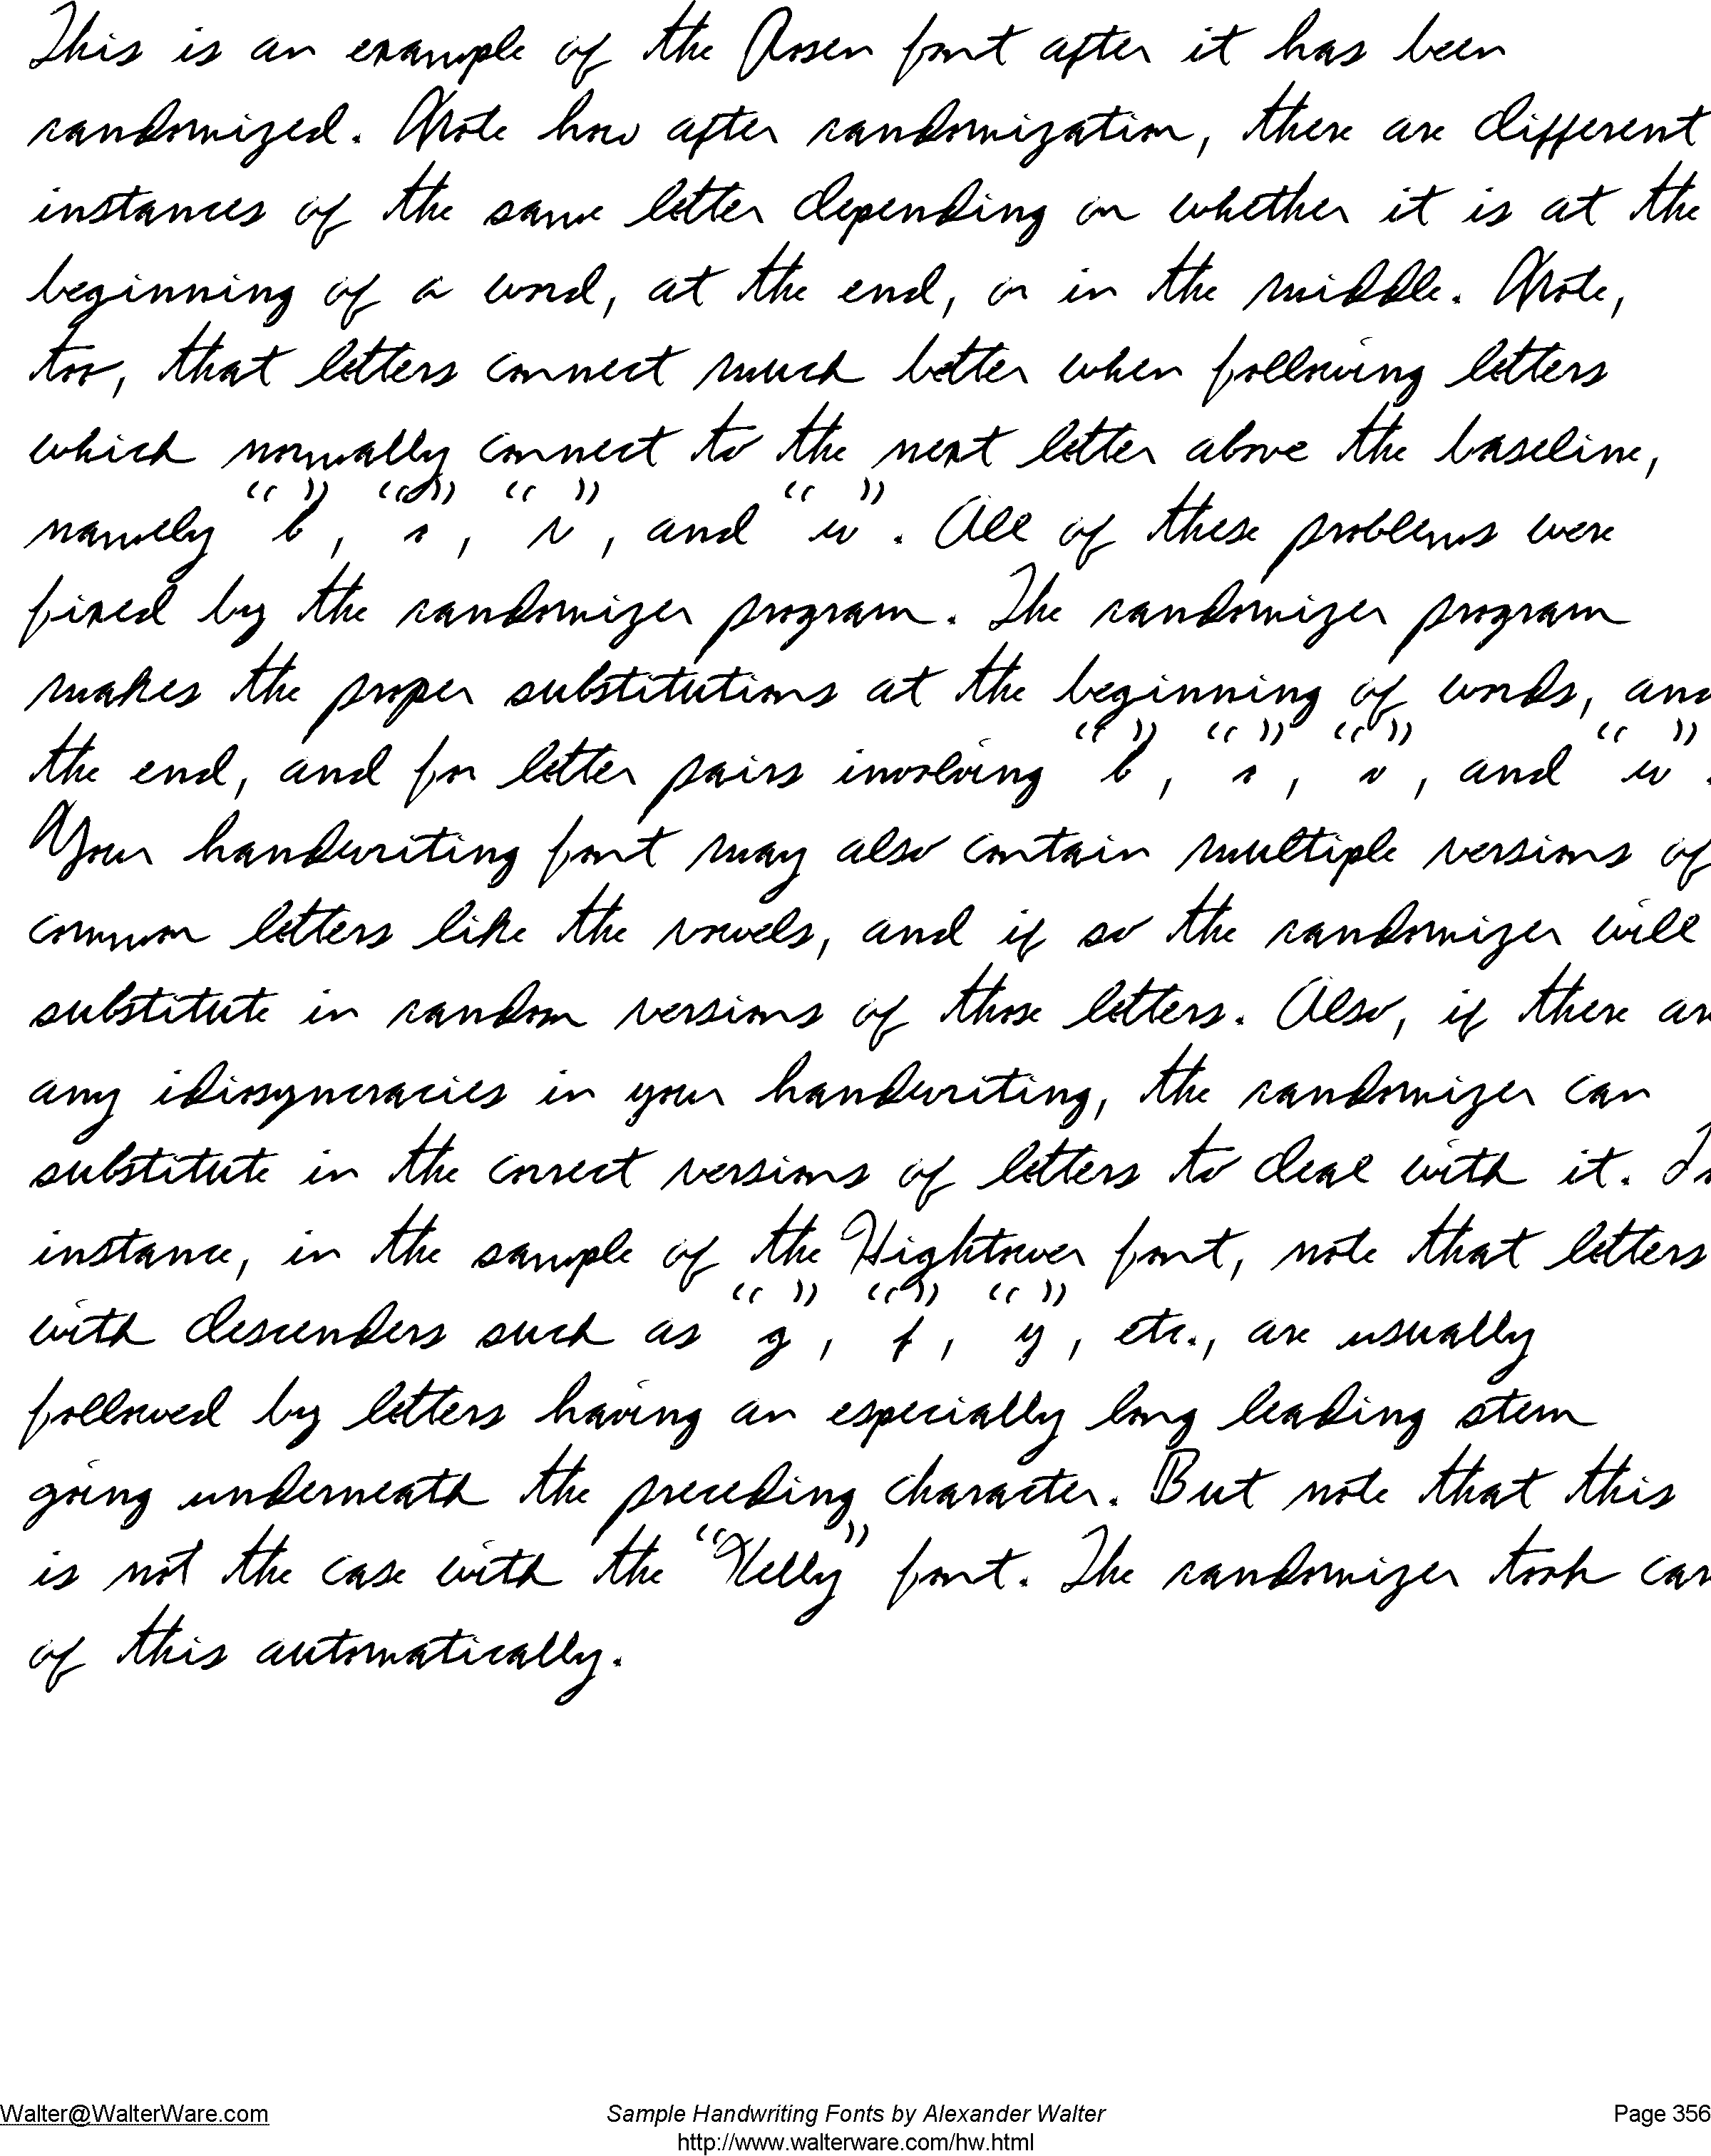 This is an example of the Rosen font after it has been
randomized. Note how after randomization, there are different
instances of the same letter depending on whether it is at the
beginning of a word, at the end, or in the middle. Note,
too, that letters connect much better when following letters
which normally connect to the next letter above the baseline,
namely “b”, “o”, “v”, and “w”. All of these problems were
fixed by the randomizer program. The randomizer program
makes the proper substitutions at the beginning of words, an
the end, and for letter pairs involving “b”, “o”, “v”, and “w”.
Your handwriting font may also contain multiple versions of
common letters like the vowels, and if so the randomizer will
substitute in random versions of those letters. Also, if there ar
any idiosyncracies in your handwriting, the randomizer can
substitute in the correct versions of letters to deal with it.
instance, in the sample of the Hightower font, note that letters
with descenders such as “g”, “f”, “y”, etc., are usually
followed by letters having an especially long leading stem
going underneath the preceding character. But note that this
is not the case with the “Kelly” font. The randomizer took car
of this automatically.
Walter@WalterWare.com Sample Handwriting Fonts by Alexander Walter Page 356
http://www.walterware.com/hw.html